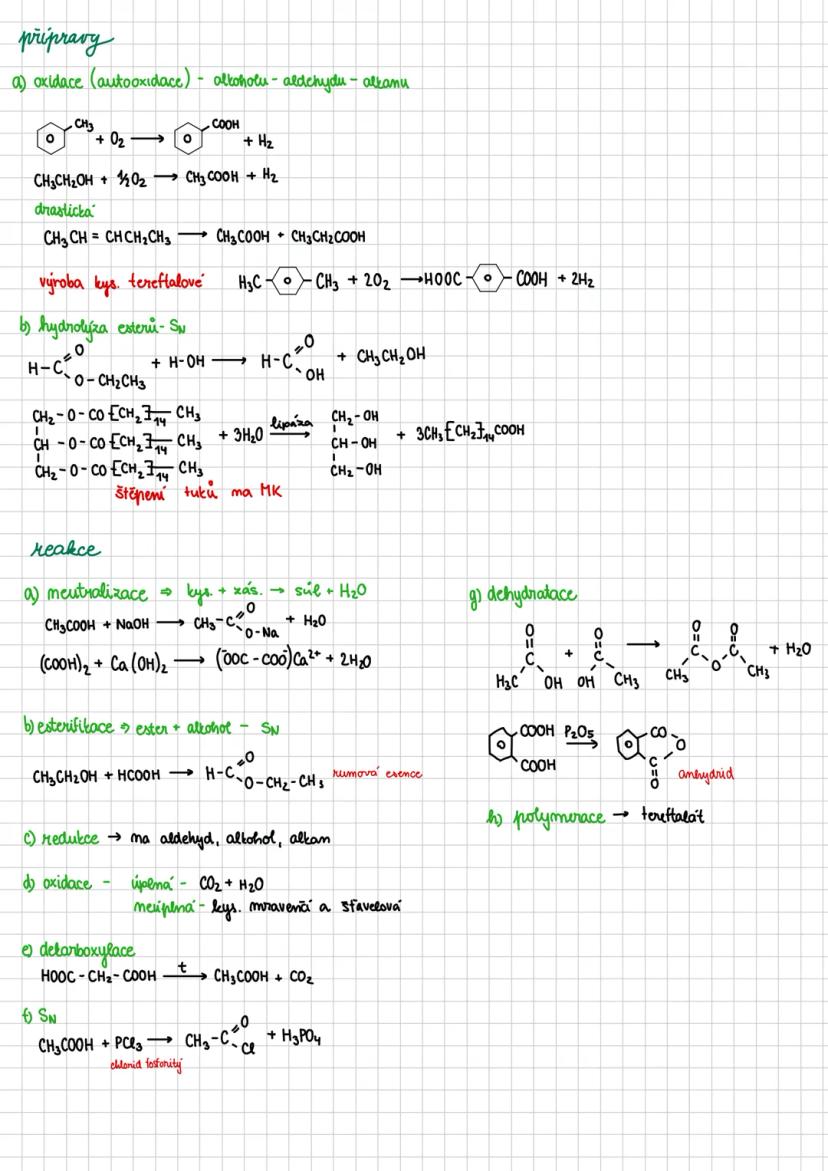 přípravy
a) oxidace (autooxidace) - alkoholu - aldehydu - alkanu
CH₃ + O₂ ⟶ COOH + H₂
CH₃CH₂OH + ½O₂ ⟶ CH₃COOH + H₂
drastická
CH₃CH = CHCH₂CH₃ ⟶ CH₃COOH + CH₃CH₂COOH
výroba kys. tereftalové H₃C - - CH₃ + 2O₂ ⟶ HOOC - - COOH + 2H₂
b) hydrolýza esterů - SN
H-C=O O-CH₂CH₃ + H-OH ⟶ H-C=O OH + CH₃CH₂OH
CH₂-O-CO[CH₂]₁₄ CH₃
CH -O-CO[CH₂]₁₄ CH₃ + 3H₂O lipáza ⟶ CH₂-OH CH-OH CH₂-OH + 3CH₃[CH₂]₁₄COOH
CH₂-O-CO[CH₂]₁₄ CH₃
štěpení tuků na MK
reakce
a) neutralizace ⇒ kys. + zás. → sůl + H₂O
CH₃COOH + NaOH ⟶ CH₃-C=O O-Na + H₂O
(COOH)₂ + Ca(OH)₂ ⟶ (⁻OOC-COO⁻)Ca²⁺ + 2H₂O
b) esterifikace ⇒ ester + alkohol - SN
CH₃CH₂OH + HCOOH ⟶ H-C=O O-CH₂-CH₃ rumová esence
c) redukce → na aldehyd, alkohol, alkan
d) oxidace - úplná - CO₂ + H₂O
neúplná - kys. mravenčí a šťavelová
e) dekarboxylace
HOOC-CH₂-COOH t ⟶ CH₃COOH + CO₂
f) SN
CH₃COOH + PCl₃ ⟶ CH₃-C=O Cl + H₃PO₄
chlorid fosforitý
g) dehydratace
O=C H₃C OH + O=C OH CH₃ ⟶ O=C CH₃ O O=C CH₃ + H₂O
COOH COOH P₂O₅ ⟶ CO O C=O anhydrid
h) polymerace → tereftalát